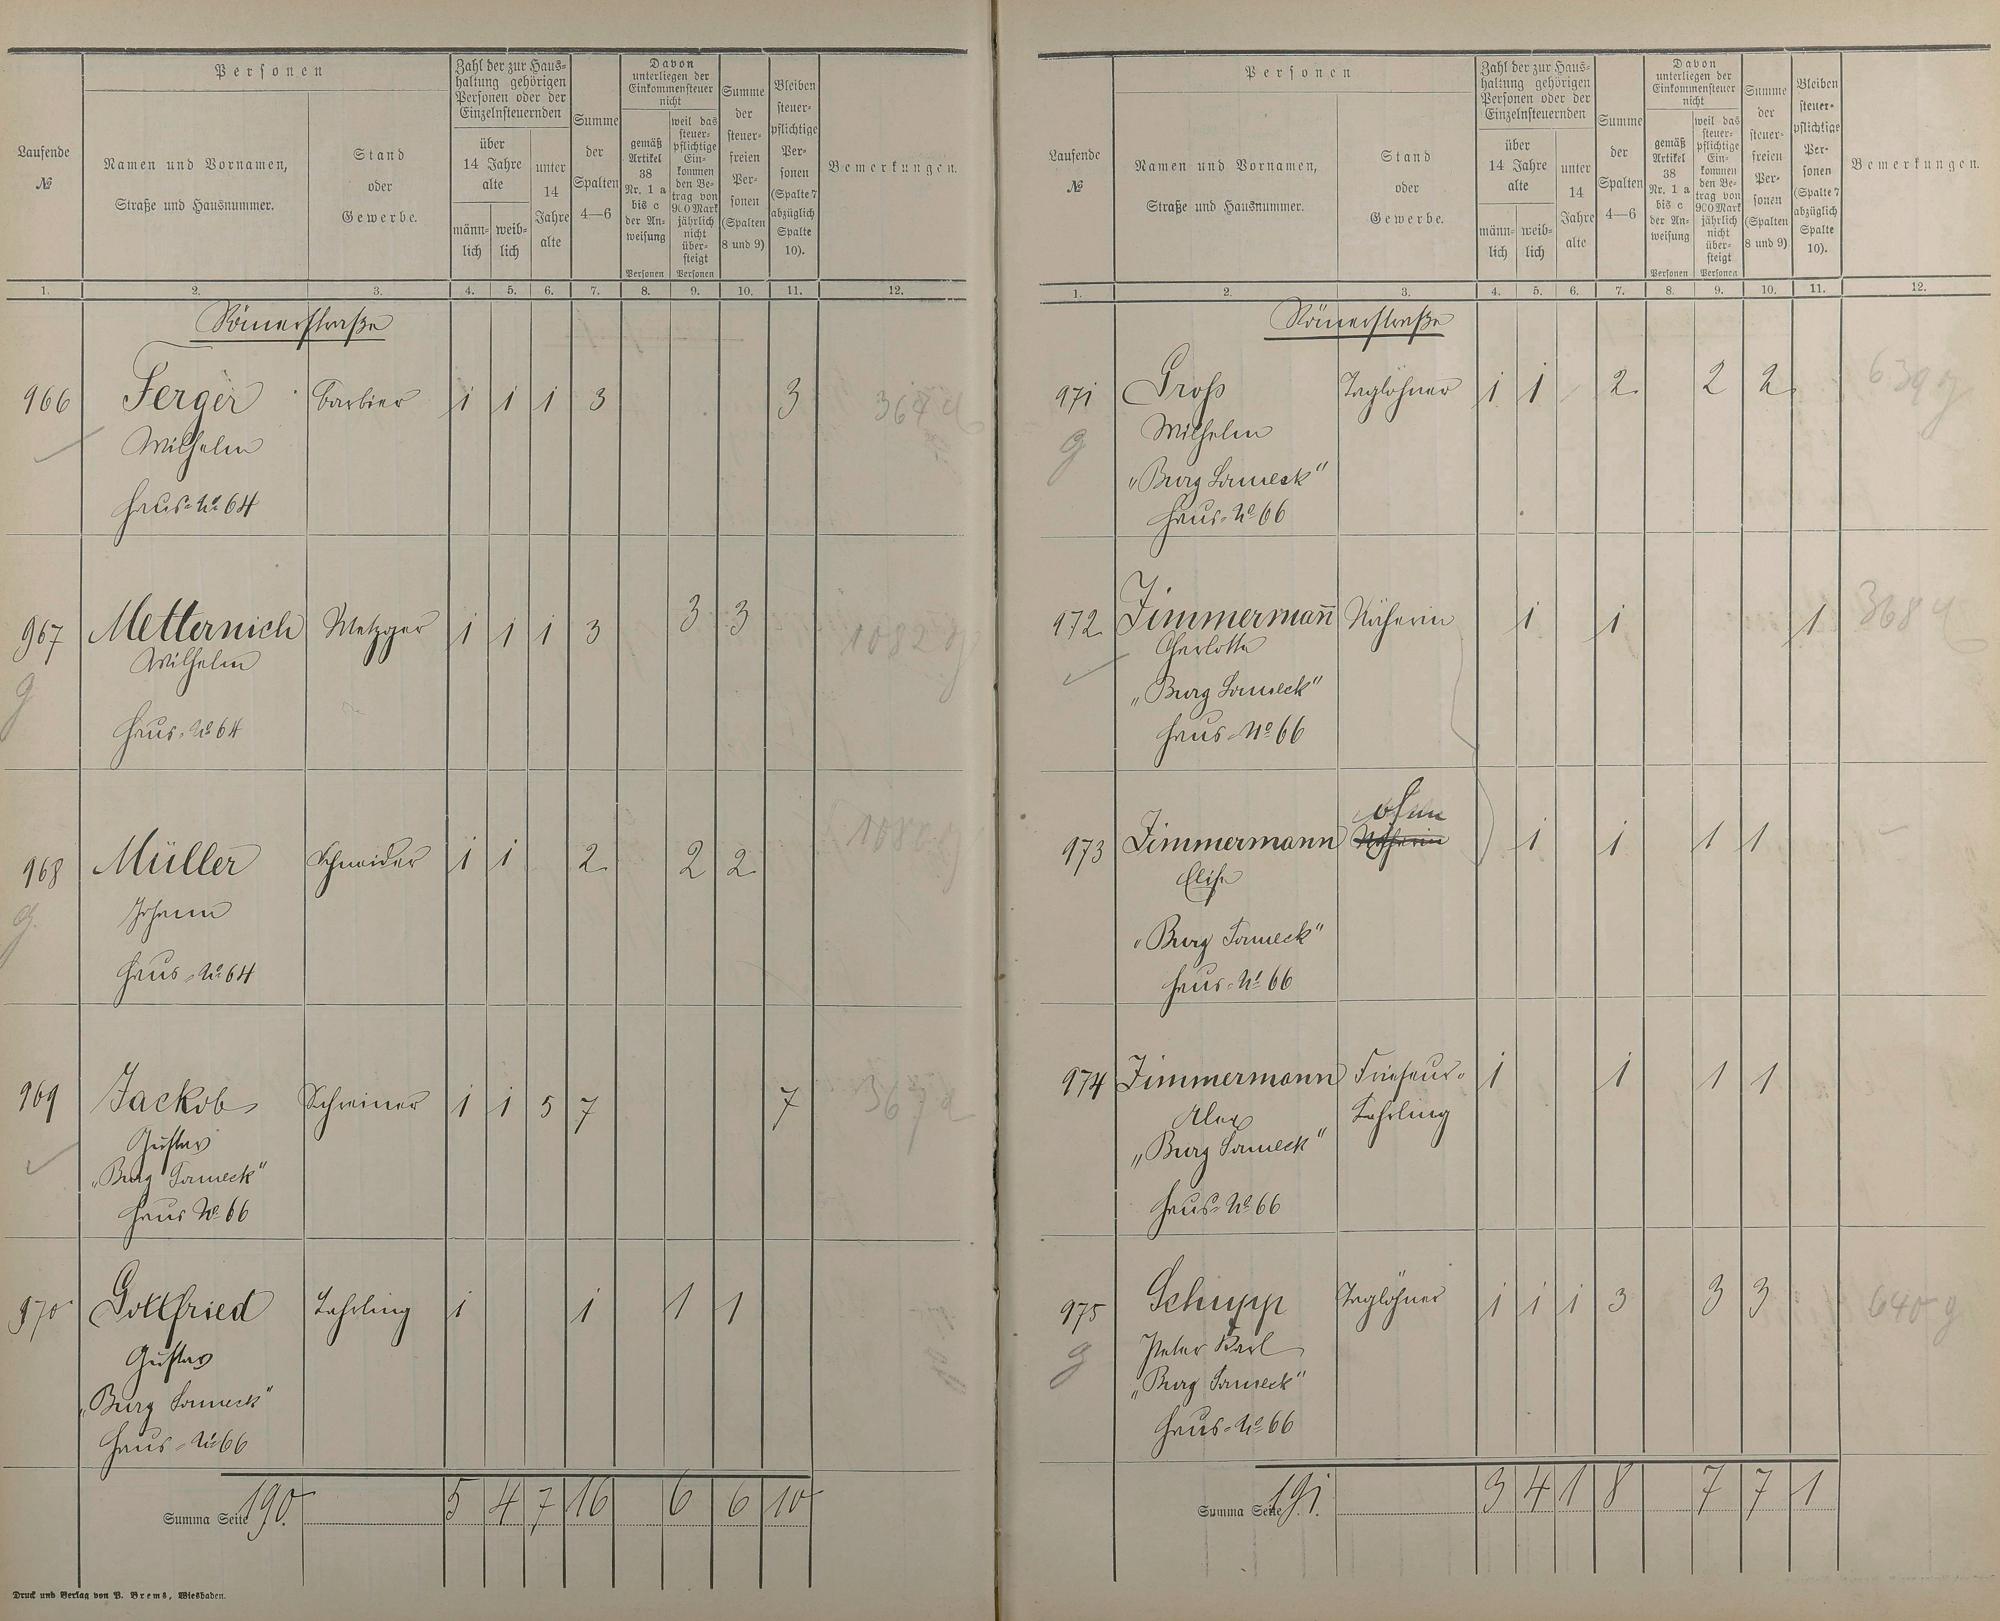 Laufende №
Personen
Namen und Vornamen,
Straße und Hausnummer.
Stand
oder
Gewerbe.
Zahl der zur Haus-
haltung gehörigen
Personen oder der
Einzelnsteuernden
über
14 Jahre
alte
männ-
lich
weib-
lich
unter
14
Jahre
alte
Summe
der
Spalten
4—6
Davon
unterliegen der
Einkommensteuer
nicht
gemäß
Artikel
38
Nr. 1 a
bis c
der An-
weisung
Personen
weil das
steuer-
pflichtige
Ein-
kommen
den Be-
trag von
900 Mark
jährlich
nicht
über-
steigt
Personen
Summe
der
steuer-
freien
Per-
sonen
(Spalten
8 und 9)
Bleiben
steuer-
pflichtige
Per-
sonen
(Spalte 7
abzüglich
Spalte
10).
Bemerkungen.
1. 2. 3. 4. 5. 6. 7. 8. 9. 10. 11. 12.
Römerstraße
966 Ferger Barbier 1 1 1 3 3 364 a
Wilhelm
Haus-No 64
967 Metternich Metzger 1 1 1 3 3 3 1082 g
Wilhelm
g
Haus-No 64
968 Müller Schneider 1 1 2 2 2 1080 g
Johann
g
Haus-No 64
969 Jackob Schreiner 1 1 5 7 7 367 a
Gustav
"Burg Sonneck"
Haus No 66
970 Gottfried Lehrling 1 1 1 1
Gustav
"Burg Sonneck"
Haus-No 66
Summa Seite 190. 5 4 7 16 6 6 10
Druck und Verlag von P. Brems, Wiesbaden.
Laufende №
Personen
Namen und Vornamen,
Straße und Hausnummer.
Stand
oder
Gewerbe.
Zahl der zur Haus-
haltung gehörigen
Personen oder der
Einzelnsteuernden
über
14 Jahre
alte
männ-
lich
weib-
lich
unter
14
Jahre
alte
Summe
der
Spalten
4—6
Davon
unterliegen der
Einkommensteuer
nicht
gemäß
Artikel
38
Nr. 1 a
bis c
der An-
weisung
Personen
weil das
steuer-
pflichtige
Ein-
kommen
den Be-
trag von
900 Mark
jährlich
nicht
über-
steigt
Personen
Summe
der
steuer-
freien
Per-
sonen
(Spalten
8 und 9)
Bleiben
steuer-
pflichtige
Per-
sonen
(Spalte 7
abzüglich
Spalte
10).
Bemerkungen.
1. 2. 3. 4. 5. 6. 7. 8. 9. 10. 11. 12.
Römerstraße
971 Groß Taglöhner 1 1 2 2 2 639 g
g Wilhelm
"Burg Sonneck"
Haus-No 66
972 Zimmermann Näherin 1 1 1 368 a
Charlotte
"Burg Sonneck"
Haus-No 66
ohne
973 Zimmermann Näherin 1 1 1 1
Elise
"Burg Sonneck"
Haus-No 66
974 Zimmermann Friseur- 1 1 1 1
Alex Lehrling
"Burg Sonneck"
Haus-No 66
975 Schupp Taglöhner 1 1 1 3 3 3 640 g
g Peter Karl
"Burg Sonneck"
Haus-No 66
Summa Seite 191. 3 4 1 8 7 7 1